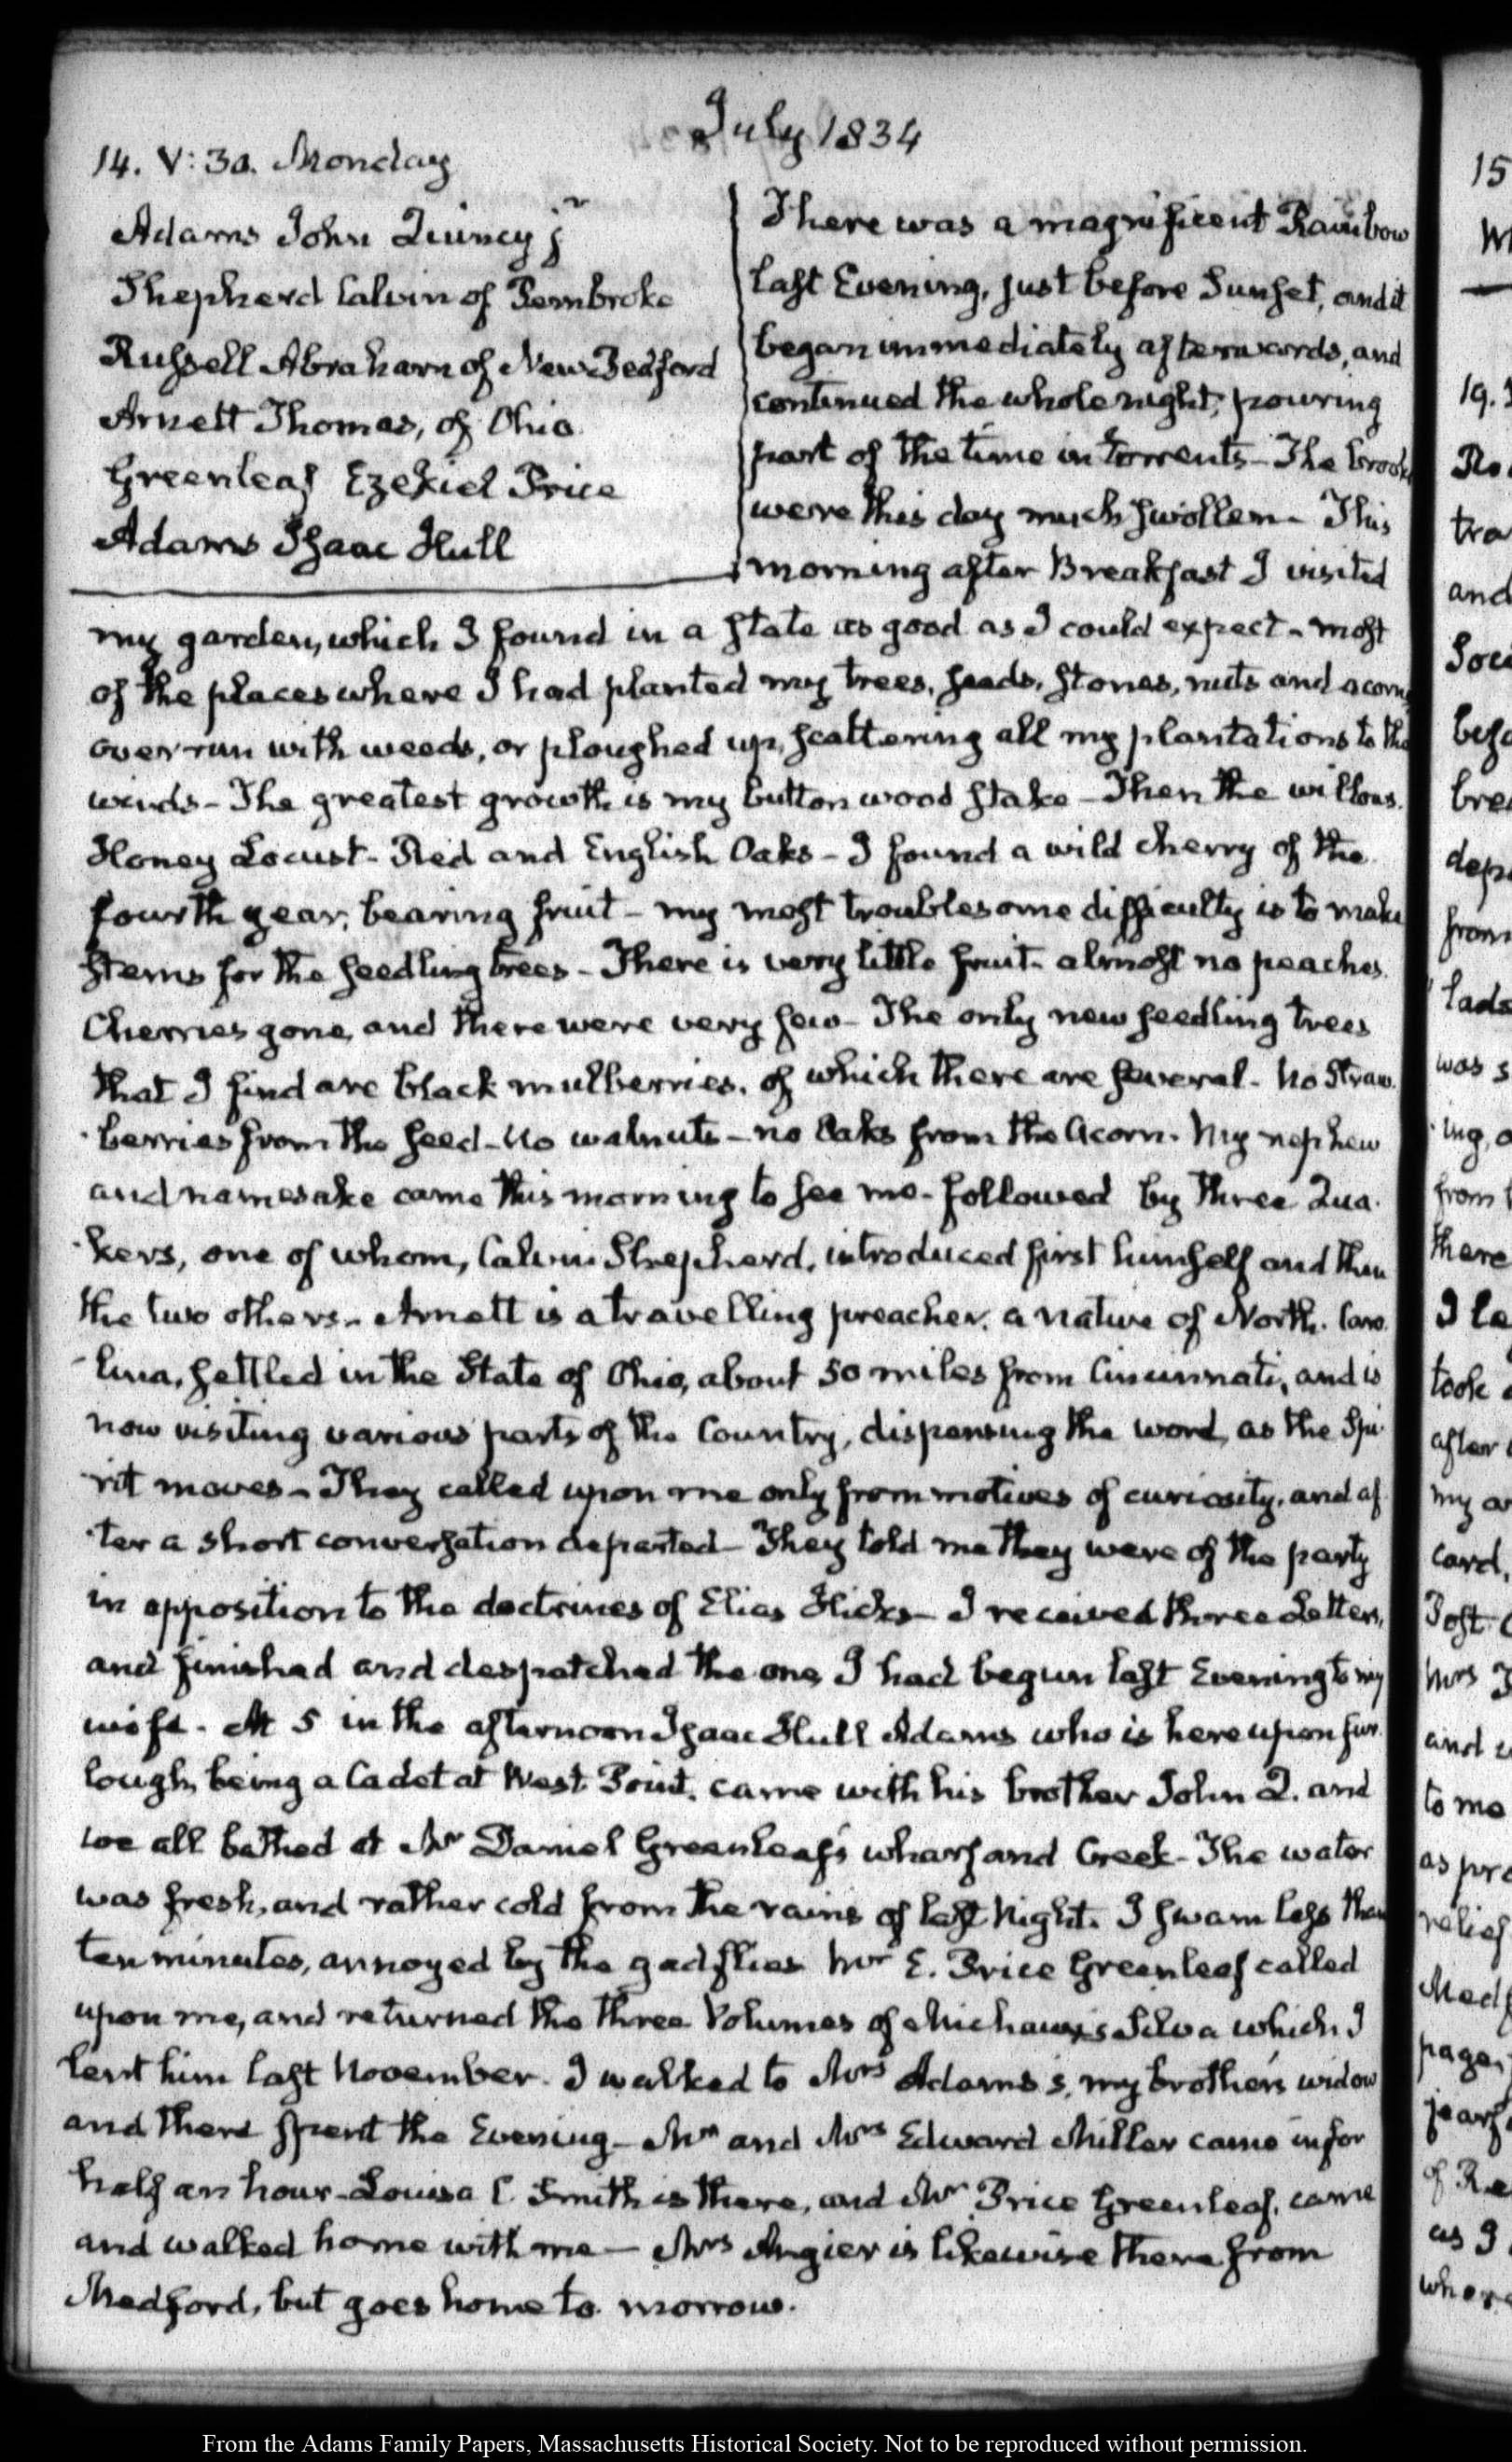 July 1834
14. V:30. Monday
Adams John Quincy jr
Shepherd Calvin of Pembroke
Russell Abraham of New Bedford
Arnett Thomas, of Ohio
Greenleaf Ezekiel Price
Adams Isaac Hull
There was a magnificent Rainbow
last Evening, just before Sunset, and it
began immediately afterwards, and
continued the whole night, pouring
part of the time in torrents – The brooks
were this day much swollen – This
morning after Breakfast I visited
my garden, which I found in a state as good as I could expect – most
of the places where I had planted my trees, seeds, stones, nuts and acorns
overrun with weeds, or ploughed up, scattering all my plantations to the
winds – The greatest growth is my button wood stake – Then the willows.
Honey Locust – Red and English Oaks – I found a wild cherry of the
fourth year, bearing fruit – my most troublesome difficulty is to make
stems for the seedling trees – There is very little fruit – almost no peaches
Cherries gone, and there were very few – The only new seedling trees
that I find are black mulberries, of which there are several – No Straw-
-berries from the seed – No walnuts – no Oaks from the Acorn. My nephew
and namesake came this morning to see me – followed by three Qua-
-kers, one of whom, Calvin Shepherd, introduced first himself and then
the two others – Arnett is a travelling preacher, a native of North Caro-
-lina, settled in the State of Ohio, about 50 miles from Cincinnati, and is
now visiting various parts of the Country, dispensing the word, as the Spi-
-rit moves – They called upon me only from motives of curiosity, and af-
-ter a short conversation departed – They told me they were of the party
in opposition to the doctrines of Elias Hicks – I received three Letters,
and finished and despatched the one I had begun last Evening to my
wife. At 5 in the afternoon Isaac Hull Adams who is here upon fur-
lough, being a Cadet at West Point, came with his brother John Q. and
we all bathed at Mr Daniel Greenleaf's wharf and Creek – The water
was fresh, and rather cold from the rains of last Night. I swam less than
ten minutes, annoyed by the gad flies Mr E. Price Greenleaf called
upon me, and returned the three Volumes of Michaux's Silva which I
lent him last November. I walked to Mrs Adams's, my brother's widow
and there spent the Evening – Mr and Mrs Edward Miller came in for
half an hour – Louisa C. Smith is there, and Mr Price Greenleaf, came
and walked home with me – Mrs Angier is likewise there from
Medford, but goes home to morrow.
15
19.
and
from
lads
was s
-ing, a
from
there
I
took
after
my
card,
Post
Mrs
and
to me
as
relief
of
as I
From the Adams Family Papers, Massachusetts Historical Society. Not to be reproduced without permission.